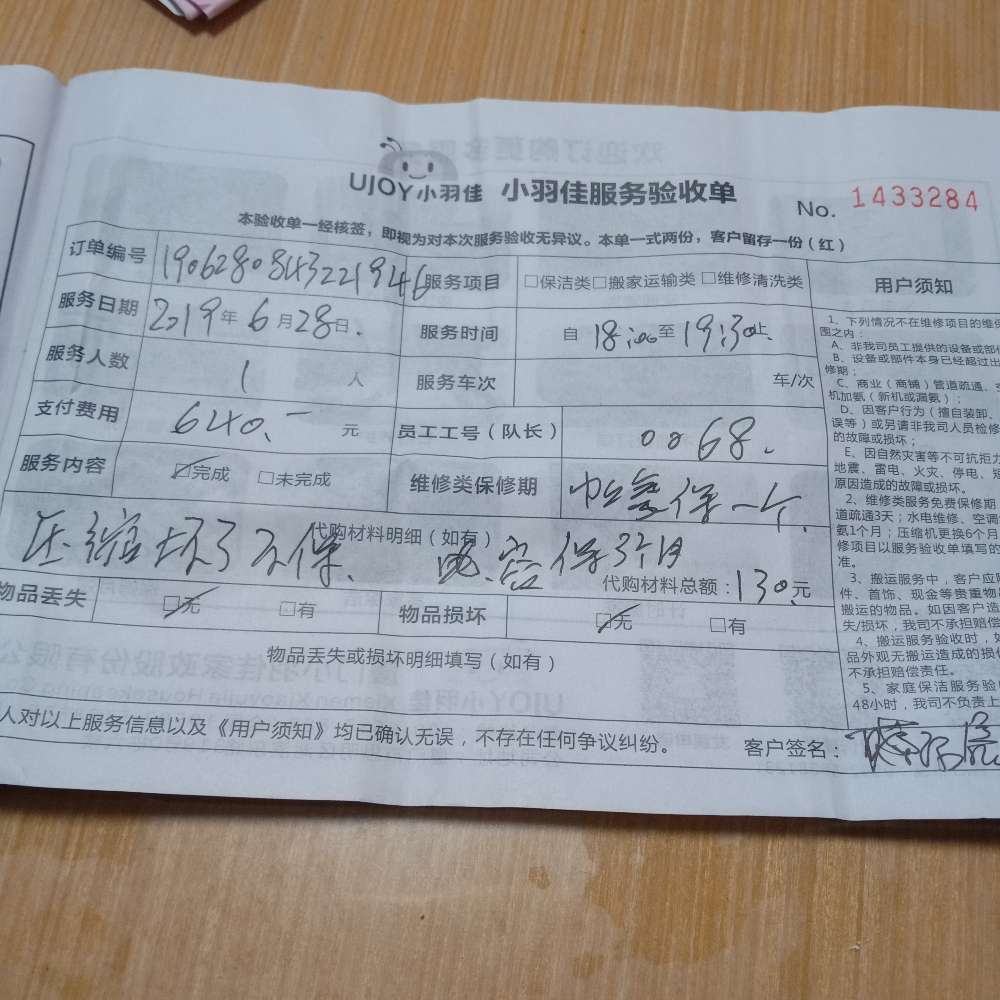 UJOY小羽佳 小羽佳服务验收单 No. 1433284
本验收单一经核签，即视为对本次服务验收无异议。本单一式两份，客户留存一份（红）
订单编号 1906280843221946 服务项目 □保洁类□搬家运输类□维修清洗类 用户须知
服务日期 2019年6月28日. 服务时间 自 18:00至19:30止
服务人数 1 人 服务车次 车/次
支付费用 640.一 元 员工工号（队长） 0068.
服务内容 ☑完成 □未完成 维修类保修期 保一个
代购材料明细（如有）
压缩坏了不保、 电容保3个月
代购材料总额：130元
物品丢失 ☑无 □有 物品损坏 ☑无 □有
物品丢失或损坏明细填写（如有）
人对以上服务信息以及《用户须知》均已确认无误，不存在任何争议纠纷。 客户签名：
1、下列情况不在维修项目的维保
围之内：
A、非我司员工提供的设备或部件
B、设备或部件本身已经超过出
修期；
C、商业（商铺）管道疏通、空
机加氨（新机或漏氨）；
D、因客户行为（擅自装卸、
误等）或另请非我司人员检修
的故障或损坏；
E、因自然灾害等不可抗拒力
地震、雷电、火灾、停电、短
原因造成的故障或损坏。
2、维修类服务免费保修期
道疏通3天；水电维修、空调
氨1个月；压缩机更换6个月
修项目以服务验收单填写的
准。
3、搬运服务中，客户应
件、首饰、现金等贵重物品
搬运的物品。如因客户造
失/损坏，我司不承担赔偿
4、搬运服务验收时，如
品外观无搬运造成的损
不承担赔偿责任。
5、家庭保洁服务验
48小时，我司不负责上